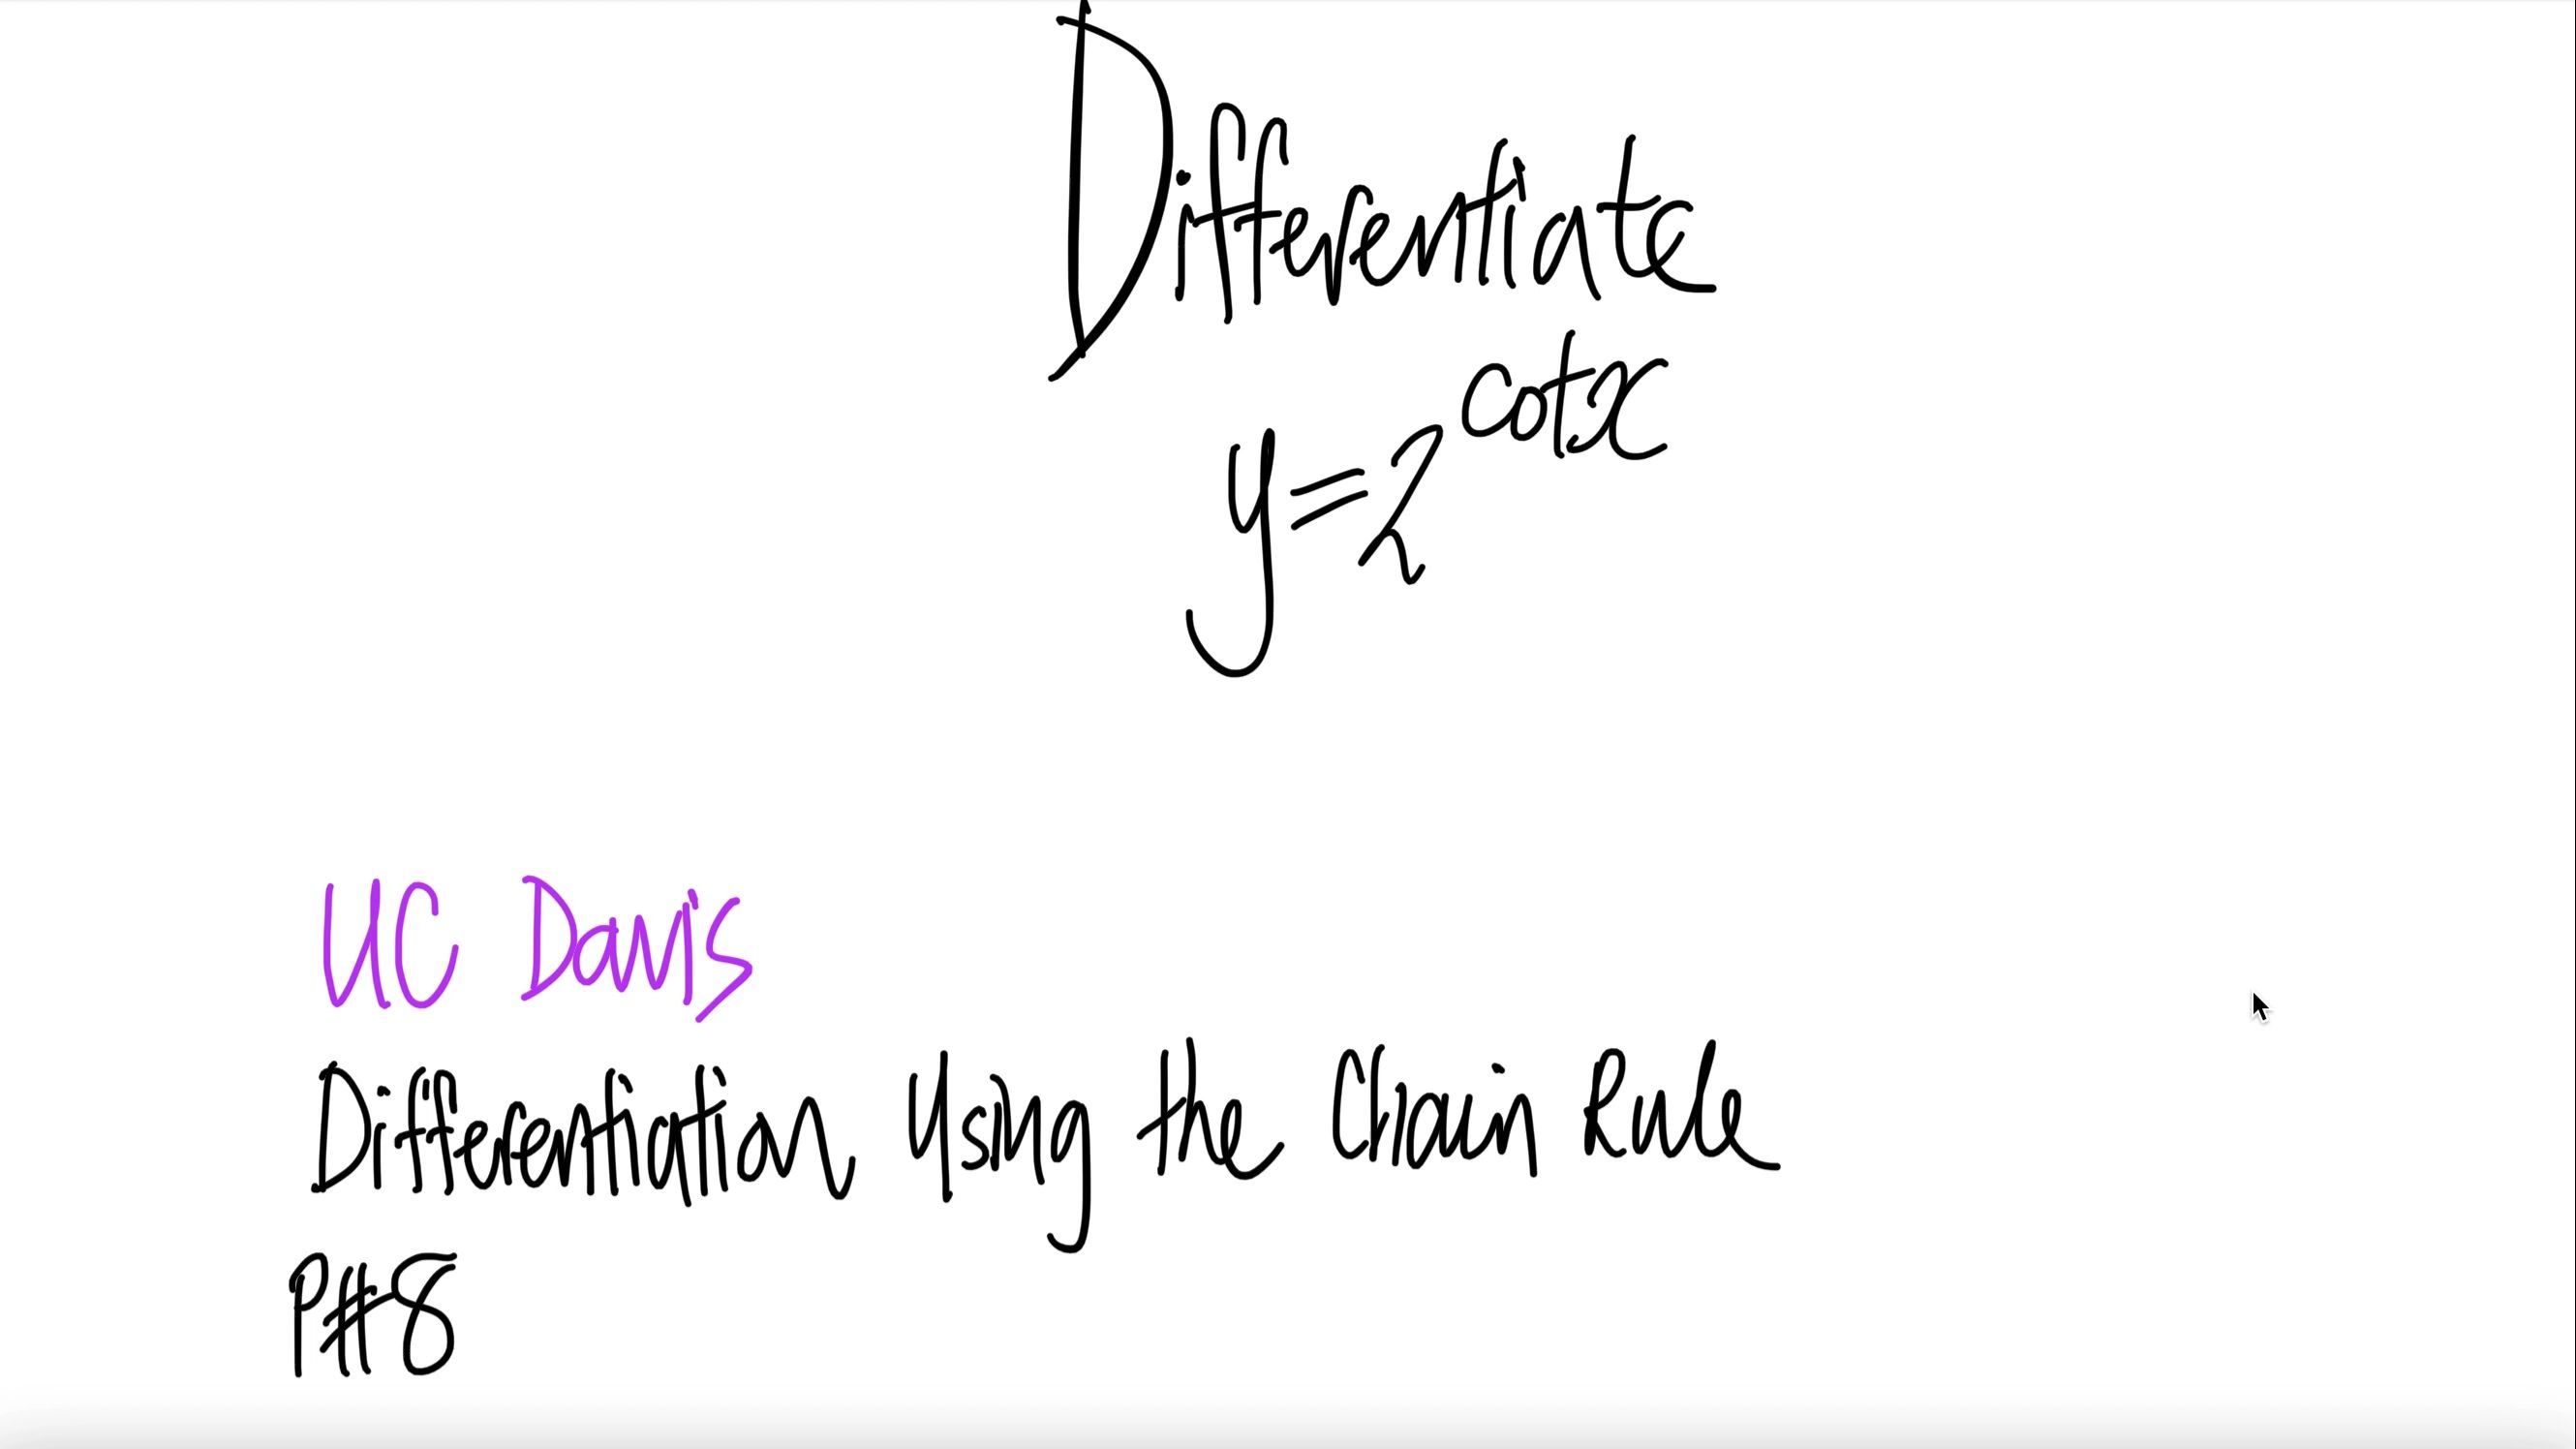 Differentiate
y=2^cotx
UC Davis
Differentiation Using the Chain Rule
P#8